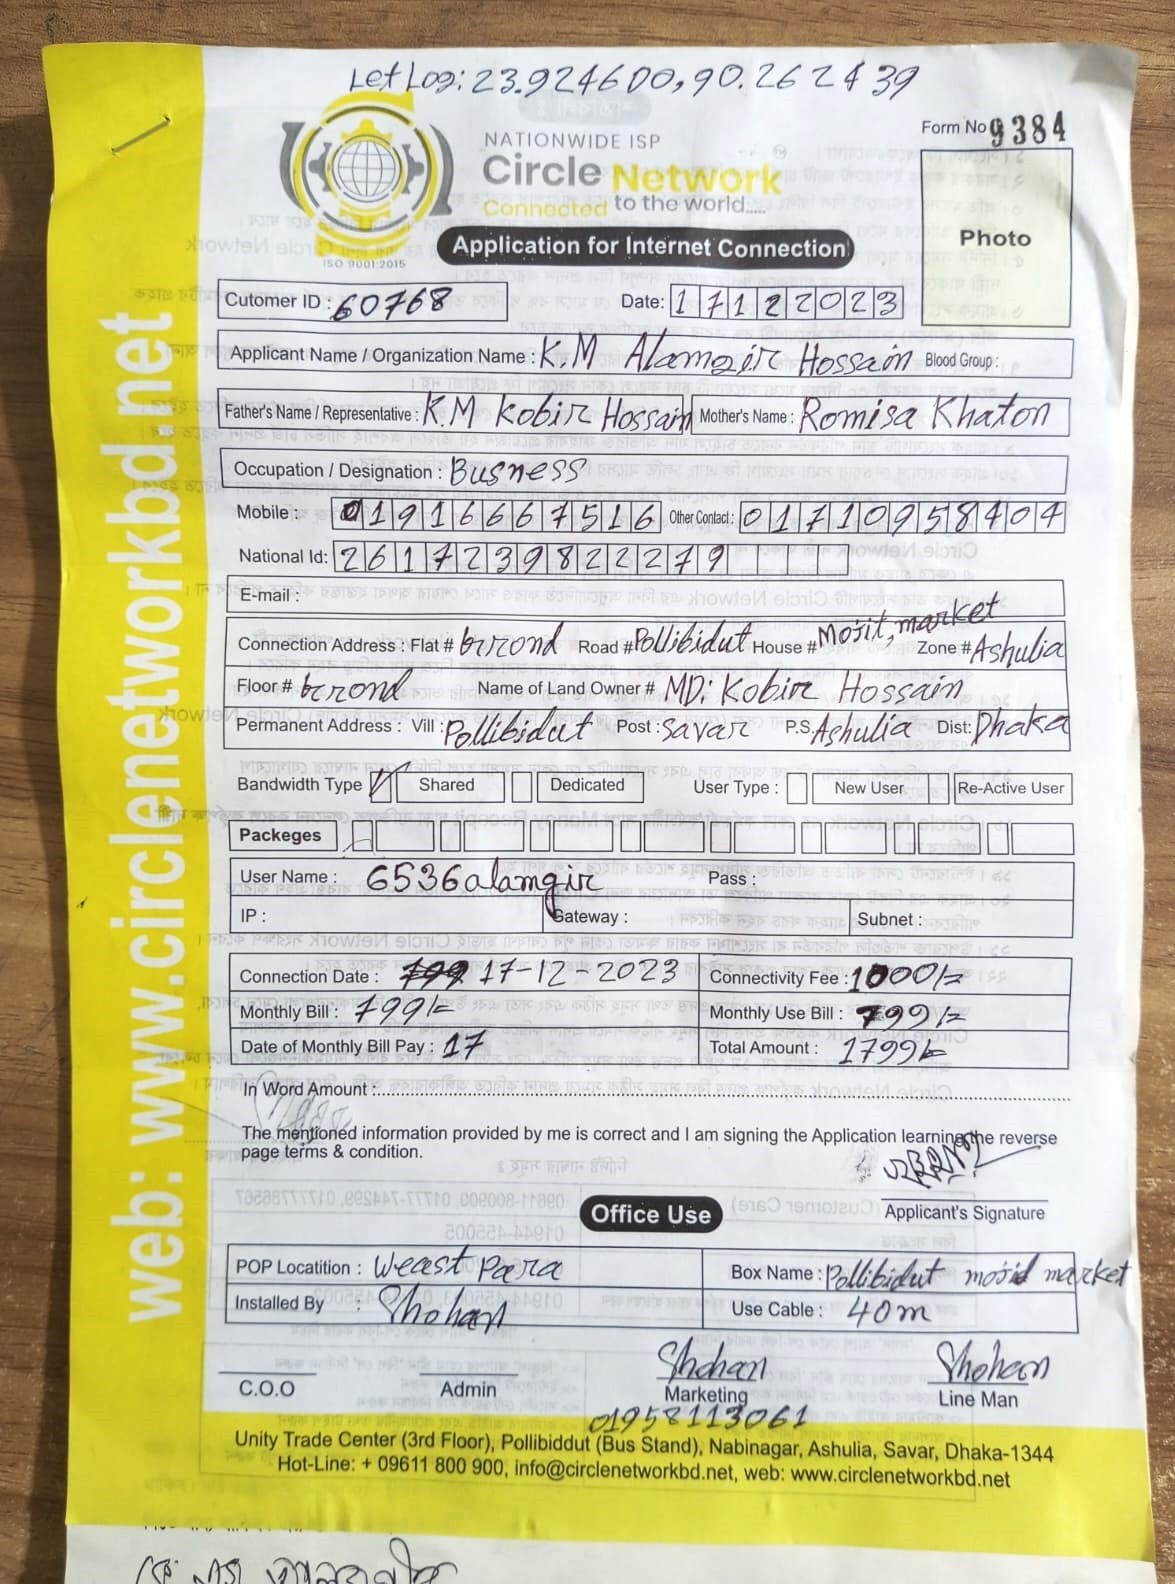 Let Log: 23.924600,90.262439
Form No 9384
NATIONWIDE ISP
Circle Network
Connected to the world.....
ISO 9001:2015
Application for Internet Connection
Photo
Cutomer ID : 60768 Date: 17122023
Applicant Name / Organization Name : K.M Alamgir Hossain Blood Group :
Father's Name / Representative : K.M Kobir Hossain Mother's Name : Romisa Khaton
Occupation / Designation : Busness
Mobile : 01916667516 Other Contact : 01710958404
National Id: 2617239822279
E-mail :
Connection Address : Flat # brrond Road # Pollibidut House # Mosit, market Zone # Ashulia
Floor # brrond Name of Land Owner # MD: Kobir Hossain
Permanent Address : Vill : Pollibidut Post : Savar P.S. Ashulia Dist: Dhaka
Bandwidth Type Shared Dedicated User Type : New User Re-Active User
Packeges
User Name : 6536alamgir Pass :
IP : Gateway : Subnet :
Connection Date : 17-12-2023 Connectivity Fee : 1000/=
Monthly Bill : 799/= Monthly Use Bill : 799/=
Date of Monthly Bill Pay : 17 Total Amount : 1799/=
In Word Amount :
The mentioned information provided by me is correct and I am signing the Application learning the reverse
page terms & condition.
Applicant's Signature
Office Use
POP Locatition : Weast Para Box Name : Pollibidut mosid market
Installed By : Shohan Use Cable : 40m
Shohan Shohan
C.O.O Admin Marketing Line Man
01958113061
Unity Trade Center (3rd Floor), Pollibiddut (Bus Stand), Nabinagar, Ashulia, Savar, Dhaka-1344
Hot-Line: + 09611 800 900, info@circlenetworkbd.net, web: www.circlenetworkbd.net
web: www.circlenetworkbd.net